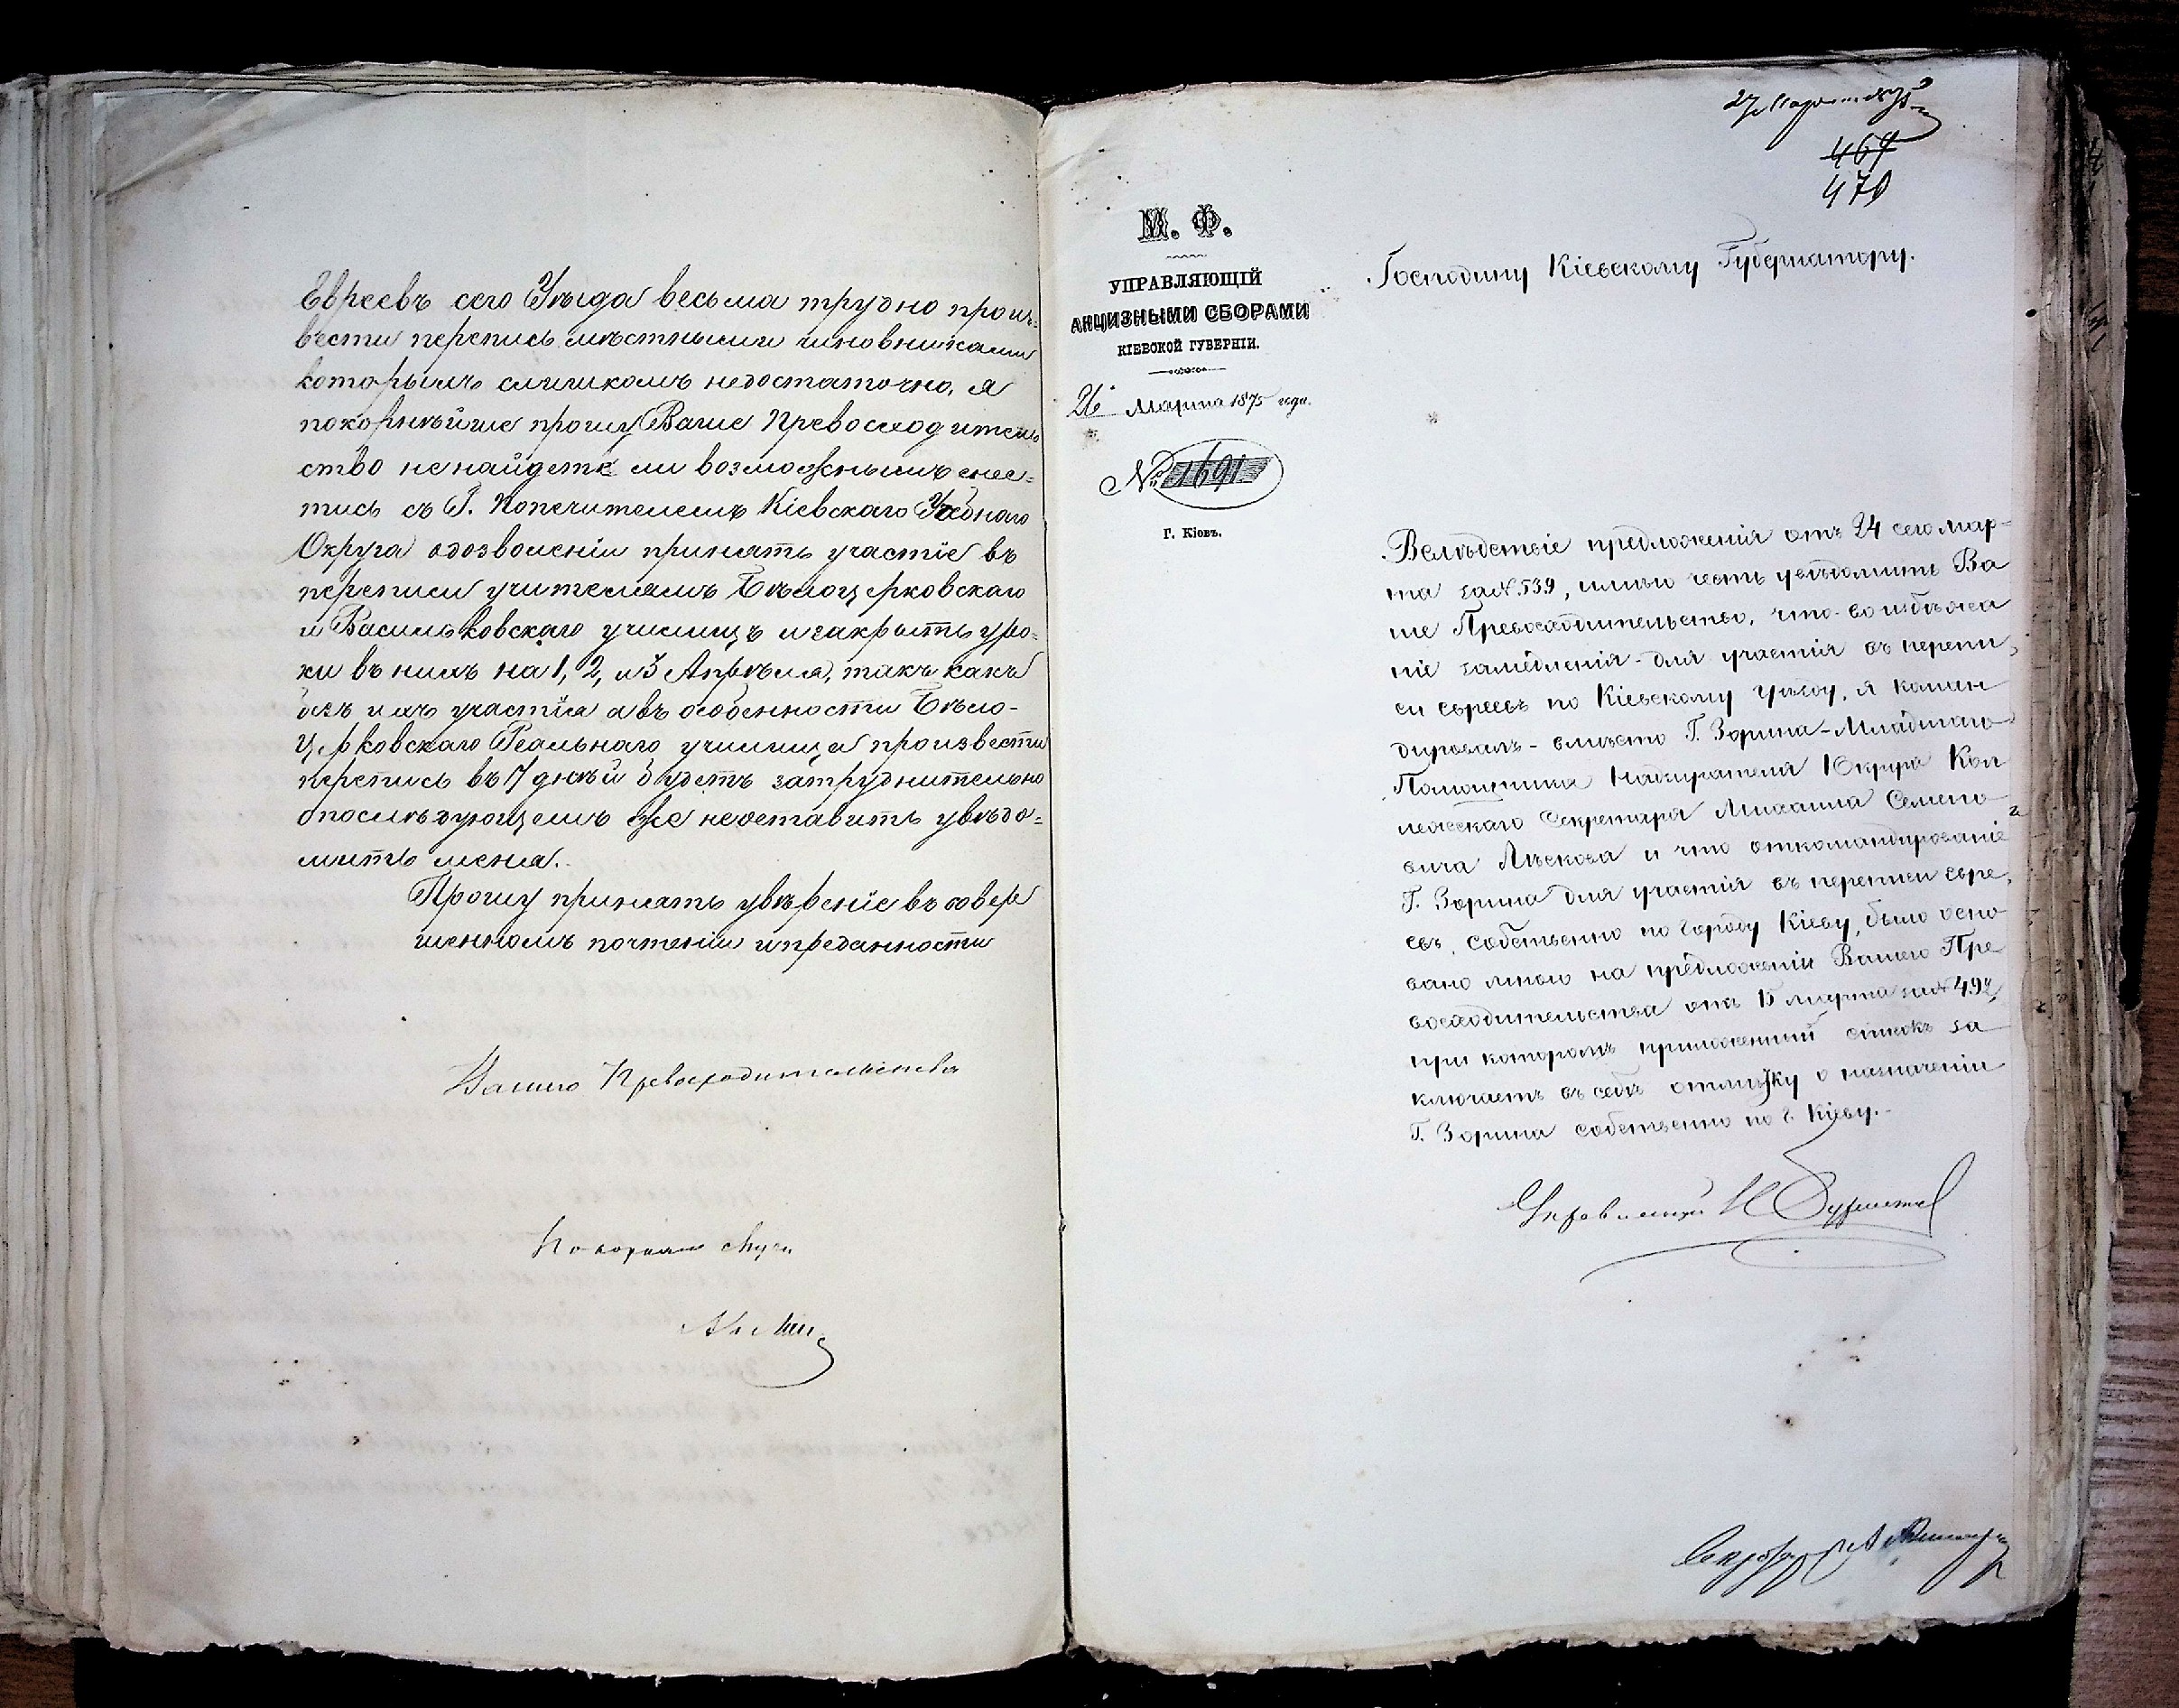 Евреевъ сего Уѣзда весьма трудно произ-
вести перепись мѣстными чиновниками
которымъ слишкомъ недостаточно, я
покорнѣйше прошу Ваше Превосходитель
ство не найдете ли возможнымъ снес=
тись съ Г. Попечителемъ Кіевскаго Учебнаго
Округа одозволеніи принять участіе въ
переписи учителямъ Бѣлоцерковскаго
и Васильковскаго училищъ и закрыть уро=
ки въ нихъ на 1, 2, и 3 Апрѣля, такъ какъ
безъ ихъ участія а въ особенности Бѣло-
Церковскаго Реальнаго училища произвести
перепись въ 7 дней будетъ затруднительно
опослѣдующемъ же неоставить увѣдо=
мить меня.
Прошу принять увѣреніе въ совер
шенномъ почтеніи и преданности
Вашего Превосходительства
Покорный слуга
27 Марта 1875
469
470
М. Ф.
УПРАВЛЯЮЩІЙ
АКЦИЗНЫМИ СБОРАМИ
КІЕВСКОЙ ГУБЕРНІИ.
26 Марта 1875 года.
№ 1691
Г. Кіевъ.
Господину Кіевскому Губернатору.
Вслѣдствіе предложенія отъ 24 сего Мар=
та за N. 539, имѣю честь увѣдомить Ва
ше Превосходительство, что во избѣжа
ніе замедленія - для участія въ перепи
си евреевъ по Кіевскому уѣзду, я коман
дировалъ - вмѣсто Г. Зорина - Младшаго
Помощника Надзирателя 1 Округа Кол
лежскаго Секретаря Михаила Семено
вича Лѣскова и что откомандированіе
Г. Зорина для участія въ переписи евре
евъ, собственно по городу Кіеву, было осно
вано мною на предложеніи Вашего Пре
восходительства отъ 15 марта за N 492,
при которомъ приложенный списокъ за
ключаетъ въ себѣ отмѣтку о назначеніи
Г. Зорина собственно по г. Кіеву. -
Управляющій
Секретарь